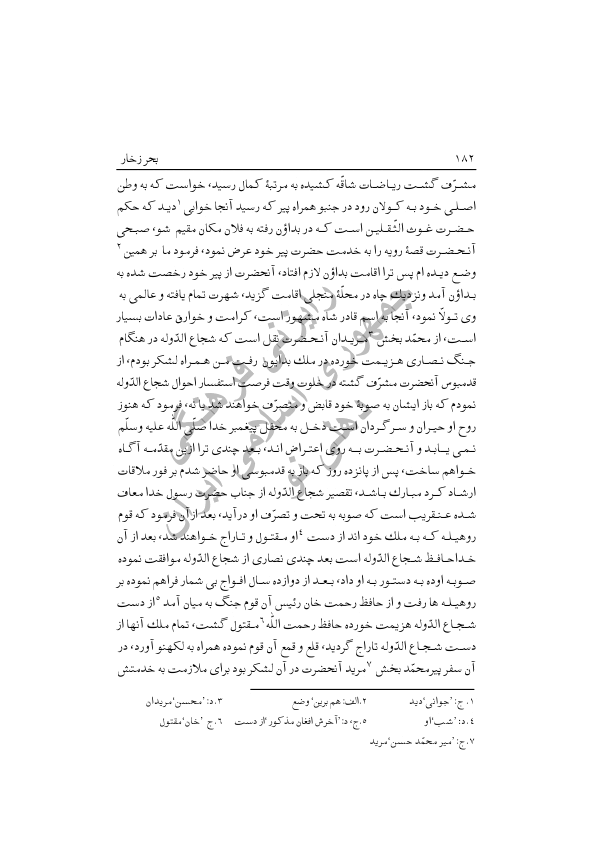 ۱۸۲ بحر زخار
مشرّف گشت ریاضات شاقّه کشیده به مرتبهٔ کمال رسید، خواست که به وطن
اصلی خود به کولان رود در جنبو همراه پیر که رسید آنجا خوابی۱ دید که حکم
حضرت غوث الثّقلین است که در بداؤن رفته به فلان مکان مقیم شو، صبحی
آنحضرت قصهٔ رویه را به خدمت حضرت پیر خود عرض نمود، فرمود ما بر همین۲
وضع دیده ام پس ترا اقامت بداؤن لازم افتاد، آنحضرت از پیر خود رخصت شده به
بداؤن آمد ونزدیک چاه در محلّهٔ منجلی اقامت گزید، شهرت تمام یافته و عالمی به
وی تولّا نمود، آنجا به اسم قادر شاه مشهور است، کرامت و خوارق عادات بسیار
است، از محمّد بخش۳ مریدان آنحضرت نقل است که شجاع الدّوله در هنگام
جنگ نصاری هزیمت خورده در ملک بدایون رفت من همراه لشکر بودم، از
قدمبوس آنحضرت مشرّف گشته در خلوت وقت فرصت استفسار احوال شجاع الدّوله
نمودم که باز ایشان به صوبهٔ خود قابض و متصرّف خواهند شد یا نه، فرمود که هنوز
روح او حیران و سرگردان است دخل به محفل پیغمبر خدا صلّی اللّه علیه وسلّم
نمی یابد و آنحضرت به روی اعتراض اند، بعد چندی ترا ازین مقدّمه آگاه
خواهم ساخت، پس از پانزده روز که باز به قدمبوسی او حاضر شدم بر فور ملاقات
ارشاد کرد مبارک باشد، تقصیر شجاع الدّوله از جناب حضرت رسول خدا معاف
شده عنقریب است که صوبه به تحت و تصرّف او درآید، بعد ازآن فرمود که قوم
روهیله که به ملک خود اند از دست۴ او مقتول و تاراج خواهند شد، بعد از آن
خداحافظ شجاع الدّوله است بعد چندی نصاری از شجاع الدّوله موافقت نموده
صوبه اوده به دستور به او داد، بعد از دوازده سال افواج بی شمار فراهم نموده بر
روهیله ها رفت و از حافظ رحمت خان رئیس آن قوم جنگ به میان آمد۵ از دست
شجاع الدّوله هزیمت خورده حافظ رحمت اللّه۶ مقتول گشت، تمام ملک آنها از
دست شجاع الدّوله تاراج گردید، قلع و قمع آن قوم نموده همراه به لکهنو آورد، در
آن سفر پیرمحمّد بخش۷ مرید آنحضرت در آن لشکر بود برای ملازمت به خدمتش
۱. ج: 'جوانی' دید ۲. الف: هم برین' وضع ۳. د: 'محسن' مریدان
۴. د: 'شب' او ۵. ج، د: 'آخرش افغان مذکور' از دست ۶. ج 'خان' مقتول
۷. ج: 'میر محمّد حسن' مرید
جمهوری اسلامی ایران
رایزنی فرهنگی
دهلی نو